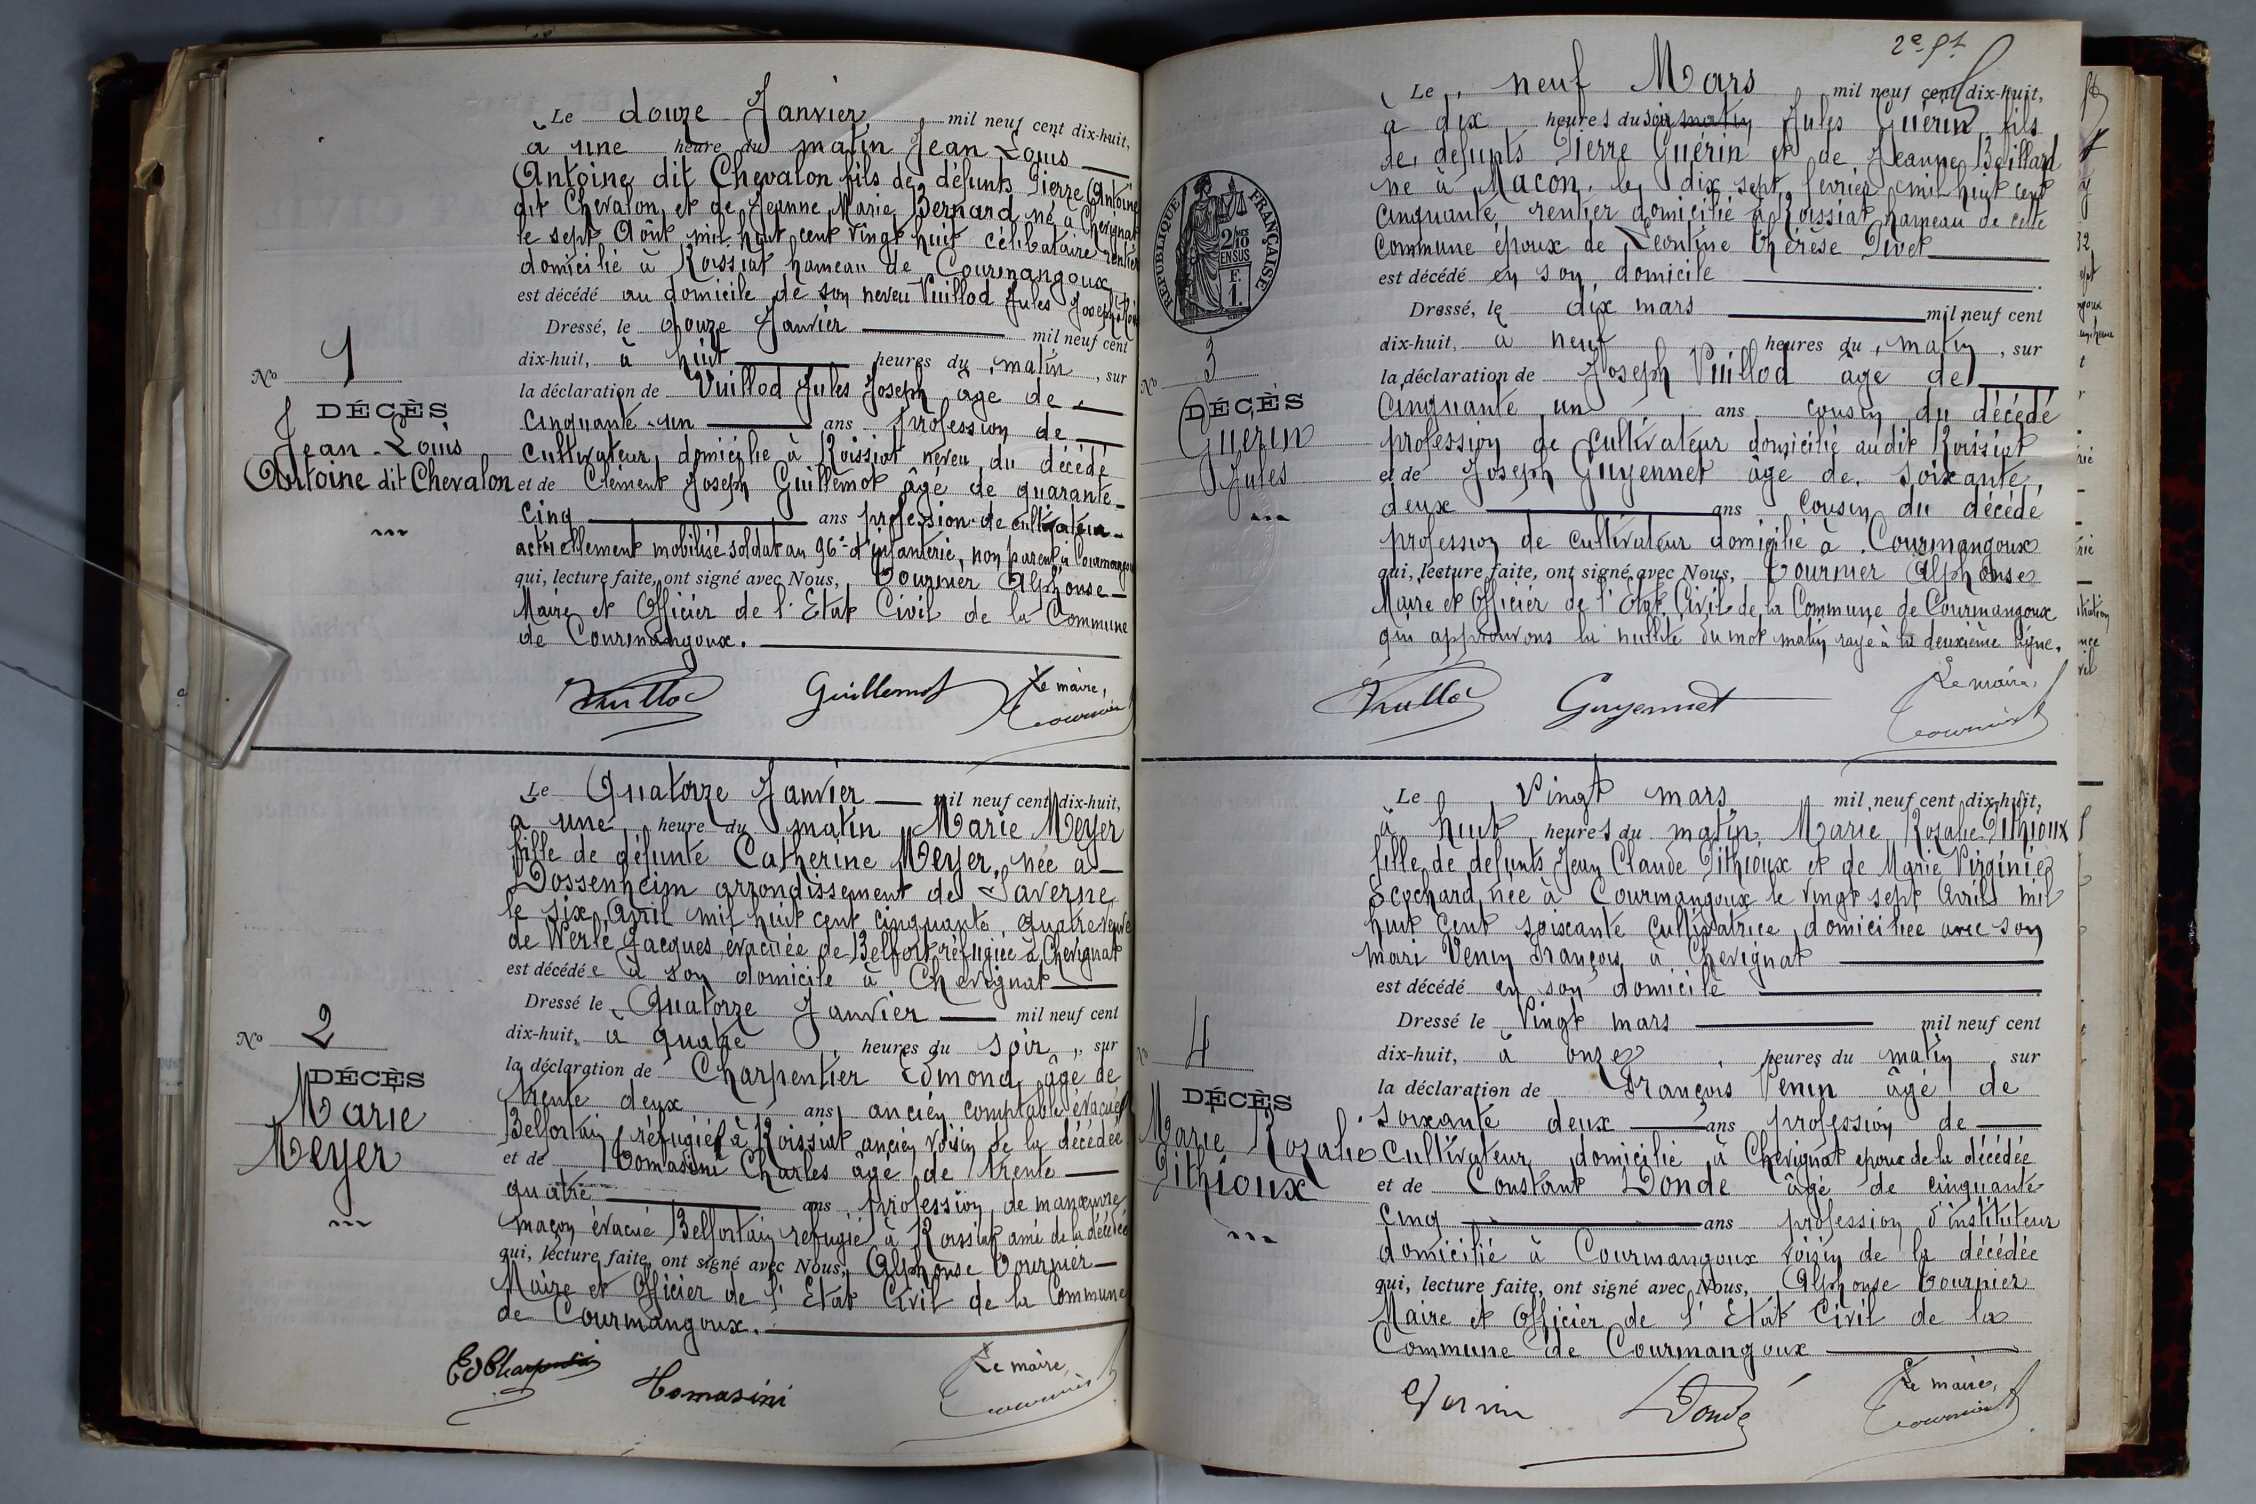 Le douze Janvier mil neuf cent dix-huit,
à une heure du matin Jean Louis
Antoine dit Chevalon fils de défunts Pierre Antoine
dit Chevalon et de Jeanne Marie Bernard né à Chevignat
le sept Août mil huit cent vingt huit célibataire rentier
domicilié à Roissiat hameau de Courmangoux
est décédé au domicile de son neveu Vuillod Jules Joseph
Dressé, le douze Janvier mil neuf cent
dix-huit, à huit heures du matin, sur
la déclaration de Vuillod Jules Joseph âgé de
cinquante-un ans profession de
cultivateur domicilié à Roissiat neveu du décédé
et de Clément Joseph Guillemot âgé de quarante-
cinq ans profession de cultivateur
actuellement mobilisé soldat au 96e d'infanterie, non parent à Courmangoux
qui, lecture faite, ont signé avec Nous, Tournier Alphonse
Maire et Officier de l'Etat Civil de la Commune
de Courmangoux.
No 1
DÉCÈS
Jean-Louis
Antoine dit Chevalon
Vuillod Guillemot Le maire,
Tournier
Le Quatorze Janvier mil neuf cent dix-huit,
à une heure du matin Marie Meyer
fille de défunte Catherine Meyer, née à
Dossenheim arrondissement de Saverne
le six Avril mil huit cent cinquante quatre veuve
de Werlé Jacques, évacuée de Belfort réfugiée à Chevignat
est décédée à son domicile à Chevignat
Dressé le Quatorze Janvier mil neuf cent
dix-huit, à quatre heures du soir, sur
la déclaration de Charpentier Edmond, âgé de
trente deux ans ancien comptable évacué
Belfortain réfugié à Roissiat ancien voisin de la décédée
et de Tomasini Charles âgé de trente
quatre ans profession de manœuvre
maçon évacué Belfortain réfugié à Roissiat ami de la décédée
qui, lecture faite, ont signé avec Nous, Alphonse Tournier
Maire et Officier de l'Etat Civil de la Commune
de Courmangoux.
No 2
DÉCÈS
Marie
Meyer
Ed Charpentier Tomasini Le maire,
Tournier
2e
Le neuf Mars mil neuf cent dix-huit,
à dix heures du soir matin Jules Guérin fils
de défunts Pierre Guérin et de Jeanne Boillard
né à Macon, le dix sept février mil huit cent
cinquante rentier domicilié à Roissiat hameau de cette
commune époux de Léontine Thérèse Pivet
est décédé en son domicile
Dressé, le dix mars mil neuf cent
dix-huit, à neuf heures du matin, sur
la déclaration de Joseph Vuillod âgé de
cinquante un ans cousin du décédé
profession de cultivateur domicilié audit Roissiat
et de Joseph Guyennet âgé de soixante
deux ans cousin du décédé
profession de cultivateur domicilié à Courmangoux
qui, lecture faite, ont signé avec Nous, Tournier Alphonse
Maire et Officier de l'Etat Civil de la Commune de Courmangoux
qui approuvons la nullité du mot matin rayé à la deuxième ligne.
RÉPUBLIQUE FRANÇAISE
2/10
EN SUS
F.
1.
No 3
DÉCÈS
Guérin
Jules
Vuillod Guyennet Le maire,
Tournier
Le Vingt mars mil neuf cent dix-huit,
à huit heures du matin Marie Rosalie Pithioux
fille de défunts Jean Claude Pithioux et de Marie Virginie
Ecochard née à Courmangoux le vingt sept Avril mil
huit cent soixante cultivatrice domiciliée avec son
mari Venin François à Chevignat
est décédé en son domicile
Dressé le Vingt mars mil neuf cent
dix-huit, à onze heures du matin, sur
la déclaration de François Venin âgé de
soixante deux ans profession de
cultivateur domicilié à Chevignat époux de la décédée
et de Constant Donde âgé de cinquante
cinq ans profession d'instituteur
domicilié à Courmangoux voisin de la décédée
qui, lecture faite, ont signé avec Nous, Alphonse Tournier
Maire et Officier de l'Etat Civil de la
Commune de Courmangoux
No 4
DÉCÈS
Marie Rosalie
Pithioux
Venin Donde Le maire,
Tournier